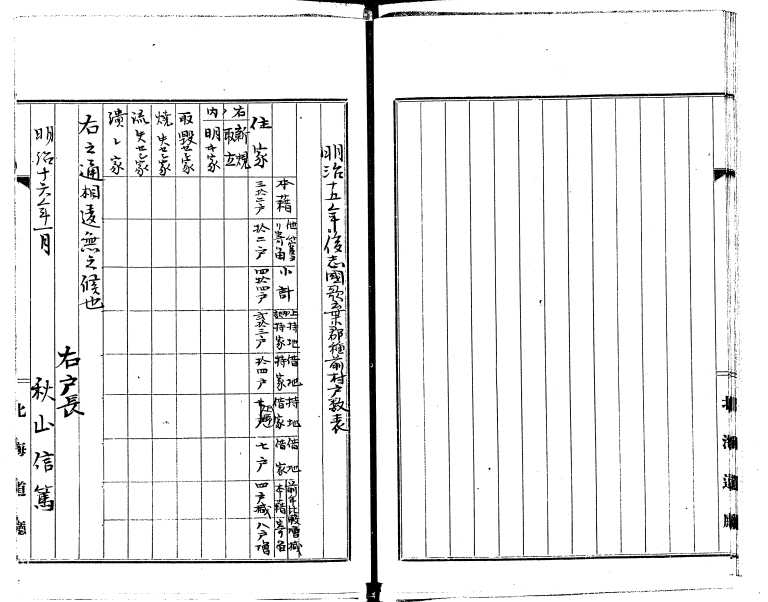 明治十五年後志國歌棄郡種前村戸数表
本籍
他ヨリ寄留
小計
持地持家
借地持家
持地借家
借地借家
前年比較増減
本籍
寄留
住家
三拾二戸
拾二戸
四拾四戸
弐拾三戸
拾四戸
七戸
四戸減
八戸増
右新規取立
内明家
取毀セシ家
焼失セシ家
流失セシ家
潰レ家
右之通相違無之候也
明治十六年一月
右戸長
秋山信篤
北海道廳
北海道廳